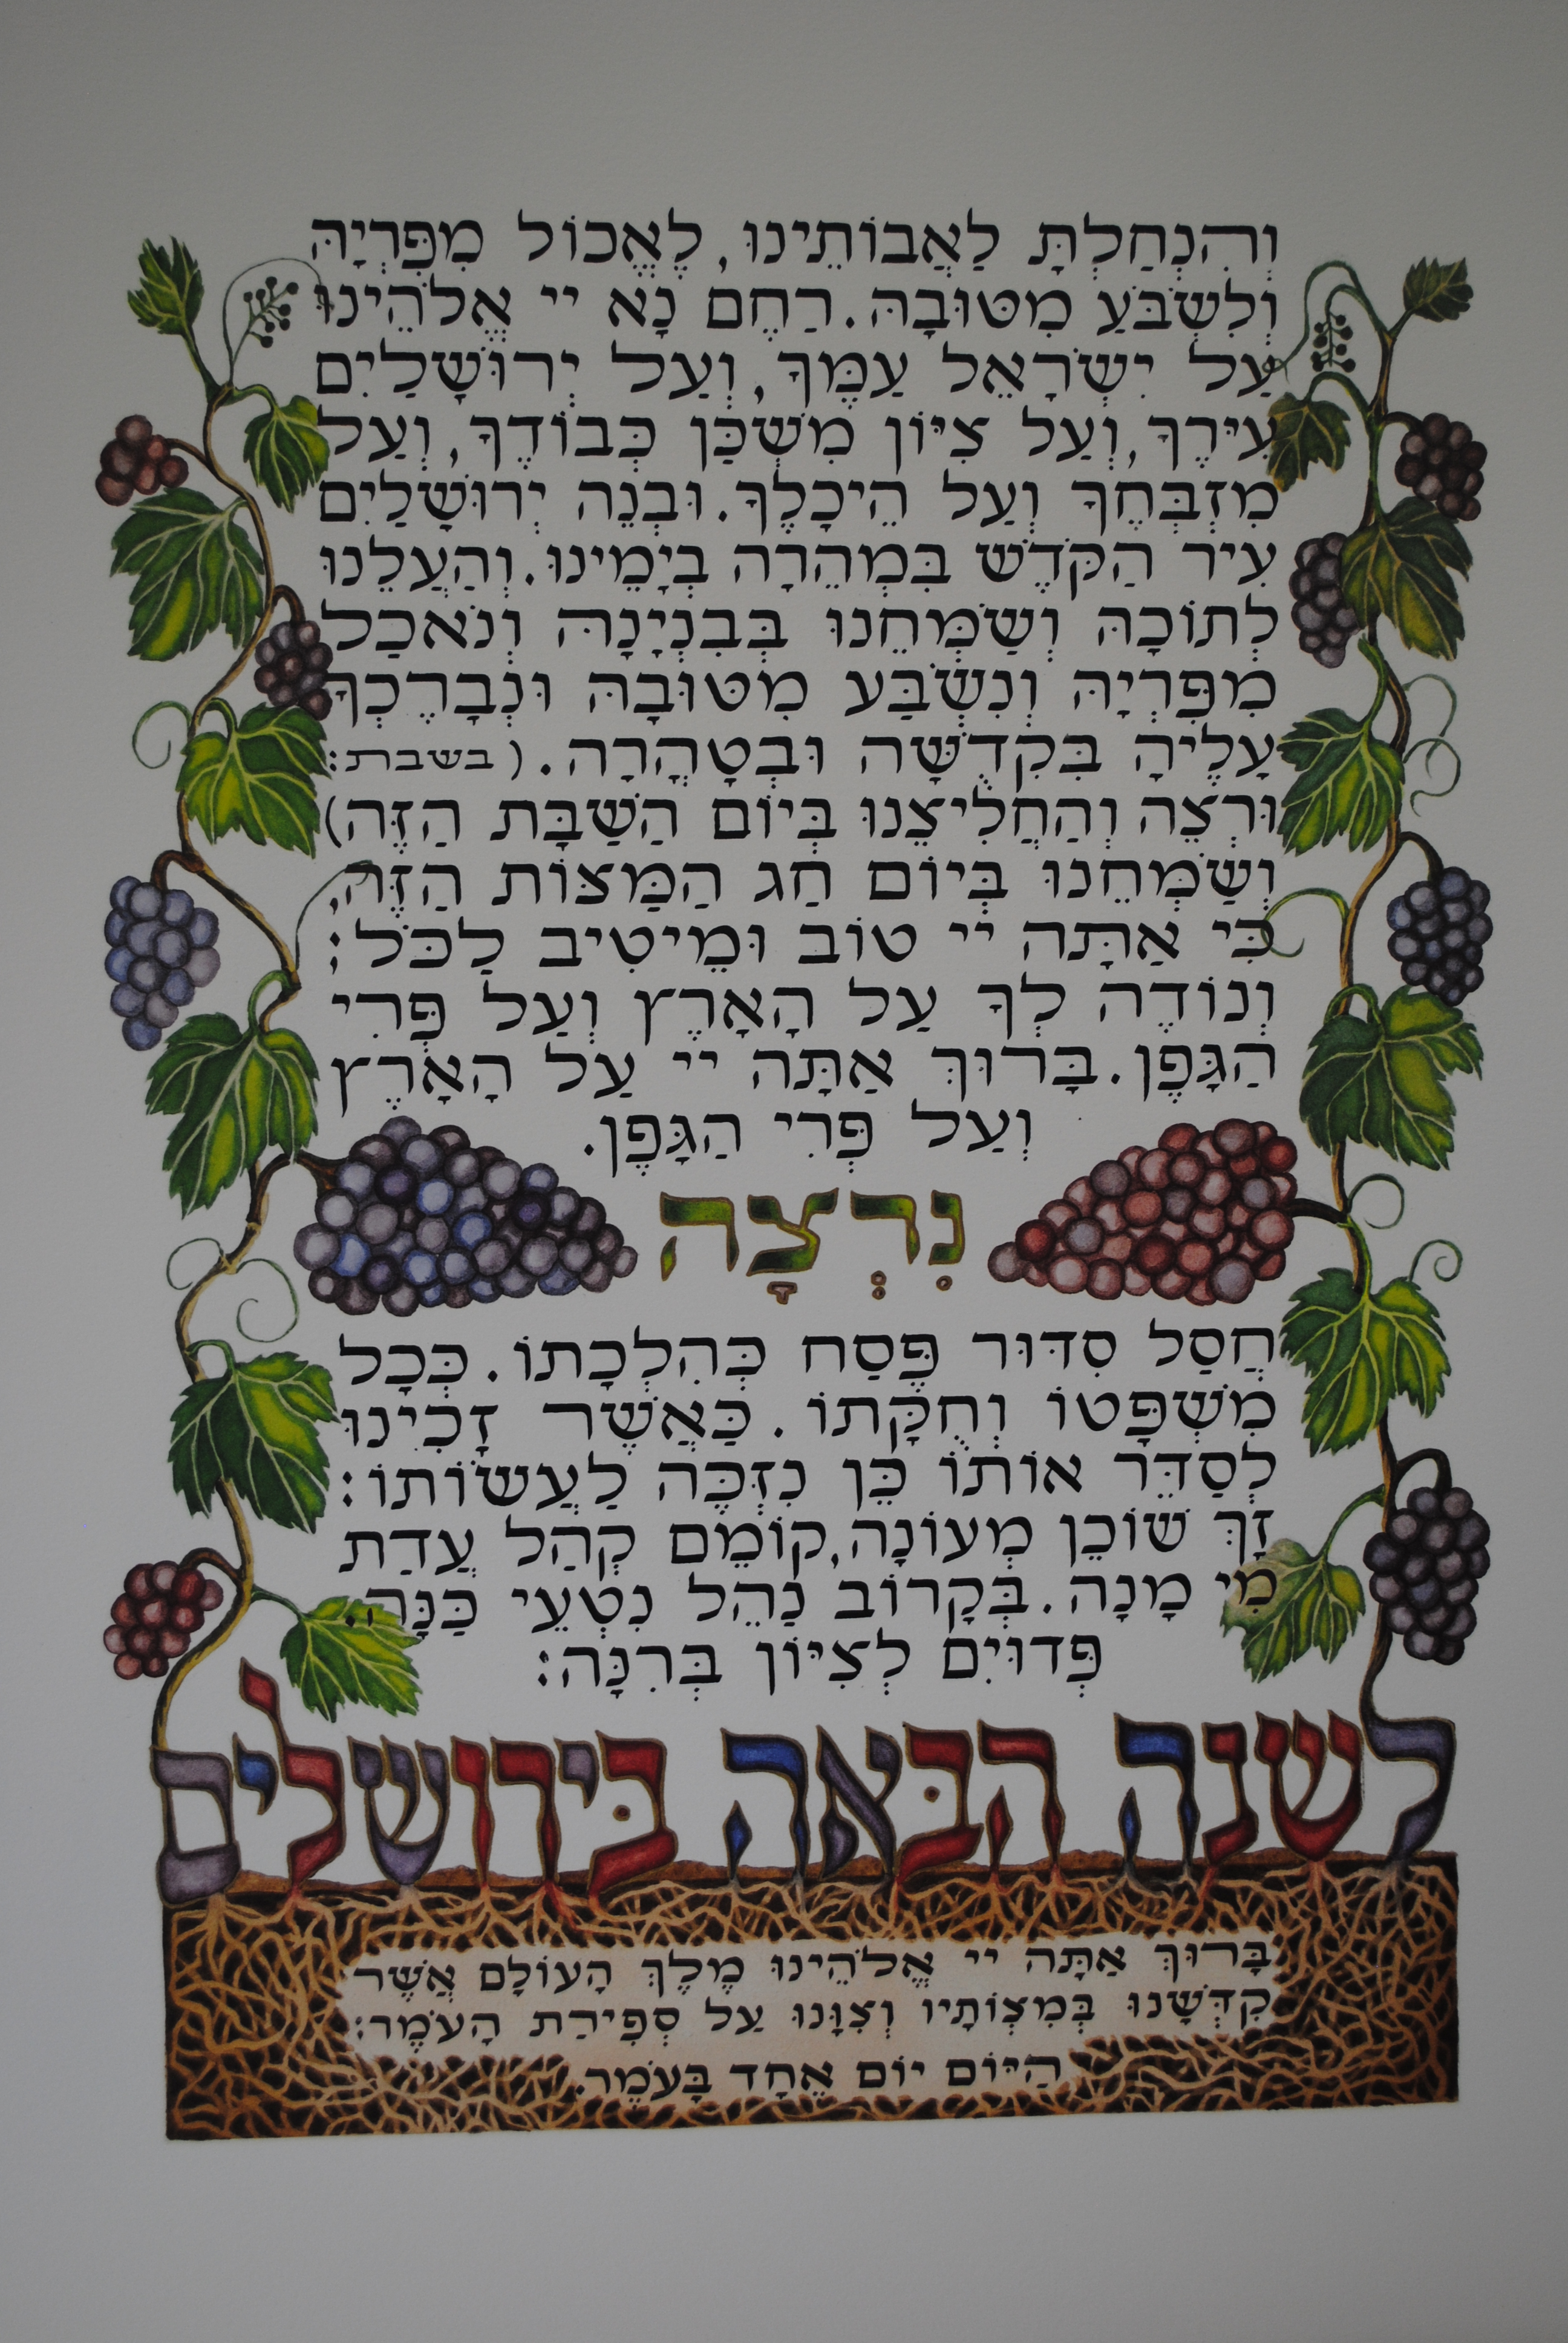 וְהִנְחַלְתָּ לַאֲבוֹתֵינוּ, לֶאֱכוֹל מִפִּרְיָהּ
וְלִשְׂבֹּעַ מִטּוּבָהּ. רַחֶם נָא יי אֱלֹהֵינוּ
עַל יִשְׂרָאֵל עַמֶּךָ, וְעַל יְרוּשָׁלַיִם
עִירֶךָ, וְעַל צִיּוֹן מִשְׁכַּן כְּבוֹדֶךָ, וְעַל
מִזְבְּחֶךָ וְעַל הֵיכָלֶךָ. וּבְנֵה יְרוּשָׁלַיִם
עִיר הַקֹּדֶשׁ בִּמְהֵרָה בְיָמֵינוּ. וְהַעֲלֵנוּ
לְתוֹכָהּ וְשַׂמְּחֵנוּ בְּבִנְיָנָהּ וְנֹאכַל
מִפִּרְיָהּ וְנִשְׂבַּע מִטּוּבָהּ וּנְבָרֶכְךָ
עָלֶיהָ בִּקְדֻשָּׁה וּבְטָהֳרָה. (בשבת:
וּרְצֵה וְהַחֲלִיצֵנוּ בְּיוֹם הַשַּׁבָּת הַזֶּה)
וְשַׂמְּחֵנוּ בְּיוֹם חַג הַמַּצּוֹת הַזֶּה,
כִּי אַתָּה יי טוֹב וּמֵיטִיב לַכֹּל;
וְנוֹדֶה לְךָ עַל הָאָרֶץ וְעַל פְּרִי
הַגָּפֶן. בָּרוּךְ אַתָּה יי עַל הָאָרֶץ
וְעַל פְּרִי הַגָּפֶן.
נִרְצָה
חֲסַל סִדּוּר פֶּסַח כְּהִלְכָתוֹ. כְּכָל
מִשְׁפָּטוֹ וְחֻקָּתוֹ. כַּאֲשֶׁר זָכִינוּ
לְסַדֵּר אוֹתוֹ כֵּן נִזְכֶּה לַעֲשׂוֹתוֹ:
זָךְ שׁוֹכֵן מְעוֹנָה, קוֹמֵם קְהַל עֲדַת
מִי מָנָה. בְּקָרוֹב נַהֵל נִטְעֵי כַּנָּה.
פְּדוּיִם לְצִיּוֹן בְּרִנָּה:
לשנה הבּאה בּירושלים
בָּרוּךְ אַתָּה יי אֱלֹהֵינוּ מֶלֶךְ הָעוֹלָם אֲשֶׁר
קִדְּשָׁנוּ בְּמִצְוֹתָיו וְצִוָּנוּ עַל סְפִירַת הָעֹמֶר:
הַיּוֹם יוֹם אֶחָד בָּעֹמֶר.